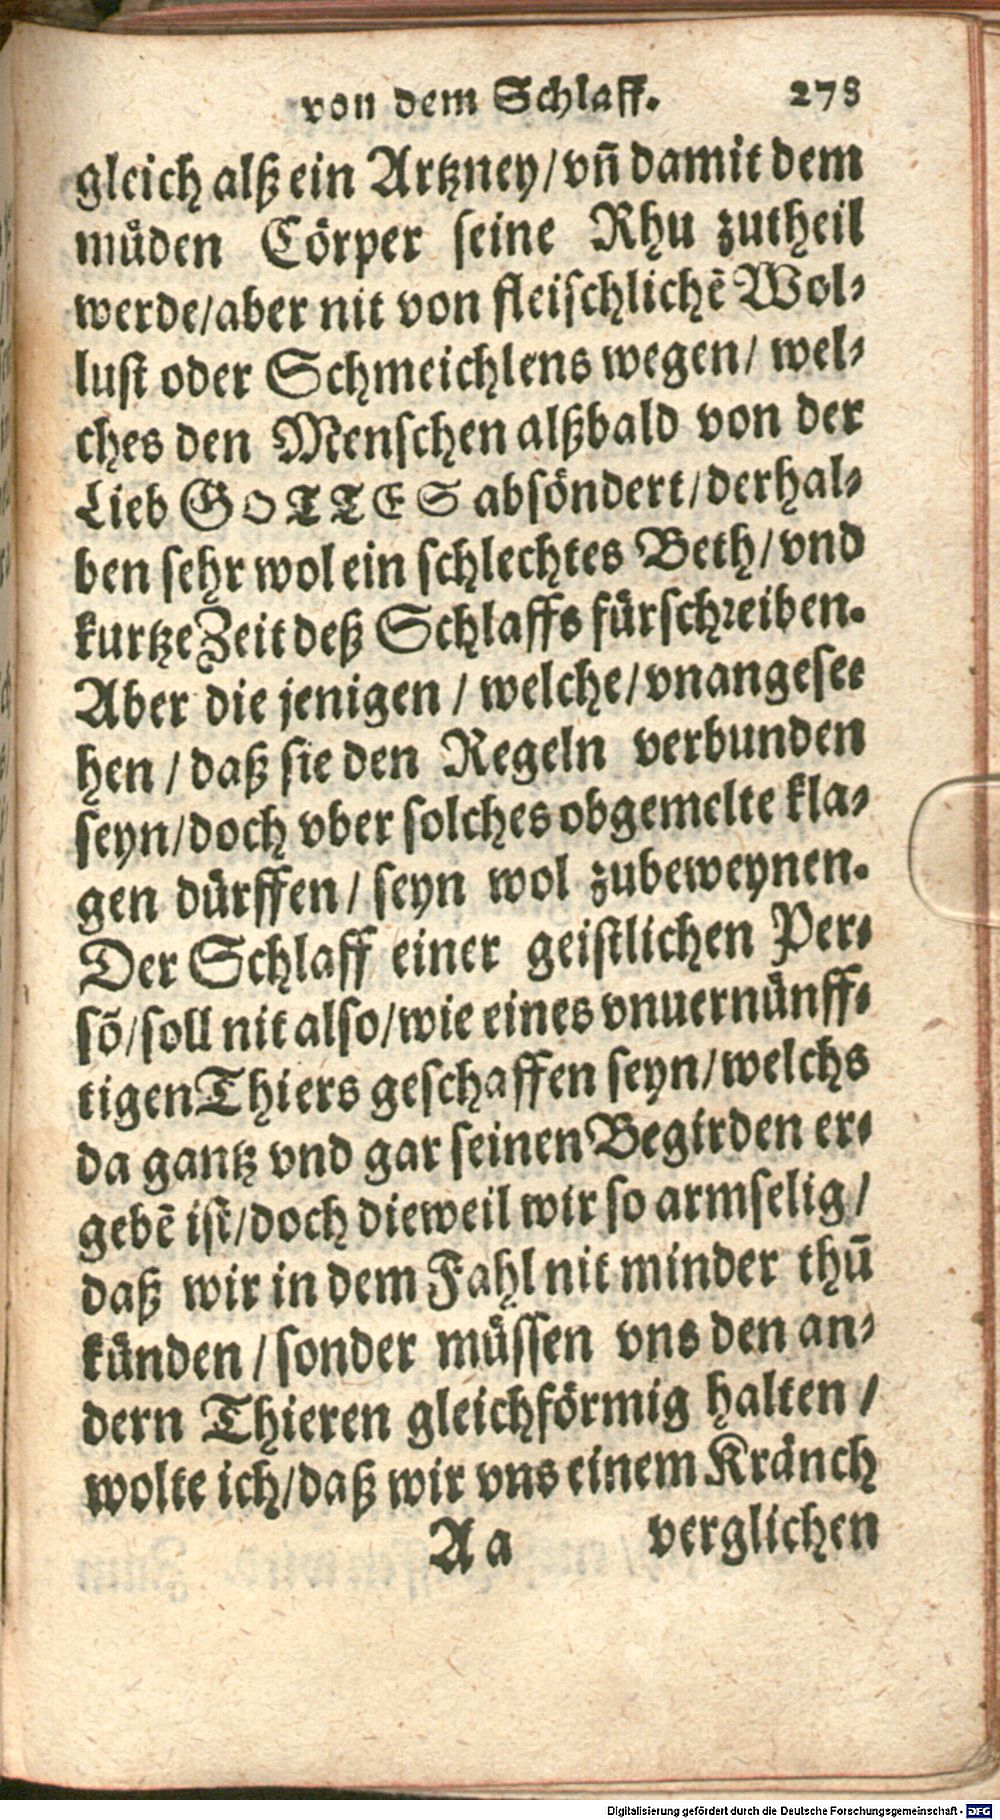 von dem Schlaff. 278
gleich alß ein Artzney/vñ damit dem
müden Cörper seine Rhu zutheil
werde/aber nit von fleischlichē Wol-
lust oder Schmeichlens wegen/ wel-
ches den Menschen alßbald von der
Lieb GOTTES absöndert/derhal-
ben sehr wol ein schlechtes Beth/vnd
kurtze Zeit deß Schlaffs fürschreiben.
Aber die jenigen / welche/vnangese-
hen / daß sie den Regeln verbunden
seyn/doch vber solches obgemelte kla-
gen dürffen/ seyn wol zubeweynen.
Der Schlaff einer geistlichen Per-
sō/soll nit also/wie eines vnuernünff-
tigen Thiers geschaffen seyn/welchs
da gantz vnd gar seinen Begirden er-
gebē ist/doch dieweil wir so armselig/
daß wir in dem Fahl nit minder thū
künden / sonder müssen vns den an-
dern Thieren gleichförmig halten /
wolte ich/daß wir vns einem Kränch
Aa verglichen
Digitalisierung gefördert durch die Deutsche Forschungsgemeinschaft - DFG